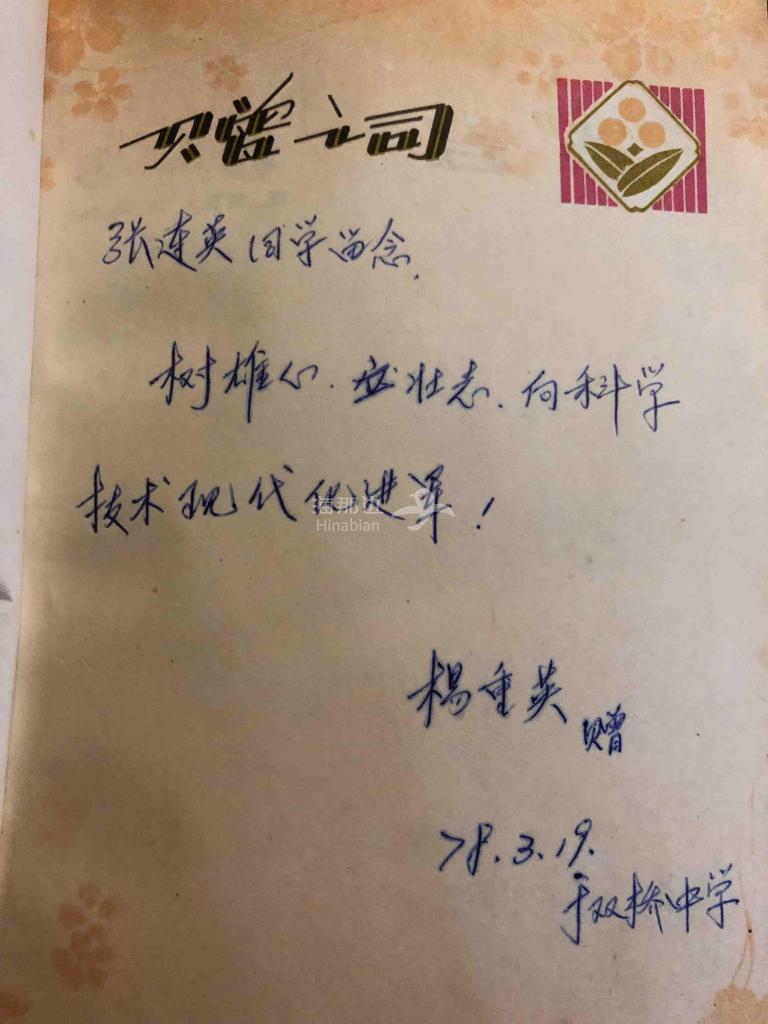 张连英同学留念.
树雄心.立壮志.向科学
技术现代化进军!
海那边
Hinabian
杨重英 赠
78.3.19.
于双桥中学